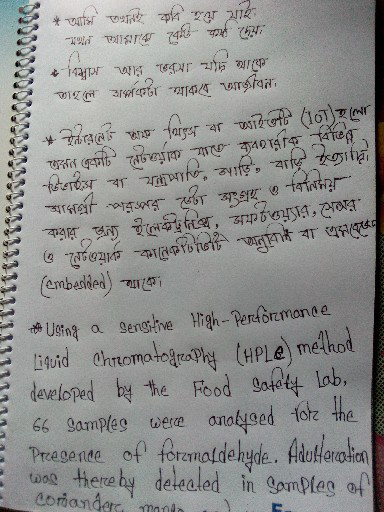 * আমি তখনই কবি হয়ে যাই
যখন আমাকে কেউ কষ্ট দেয়।
* বিশ্বাস আর ভরসা যদি থাকে
তাহলে সম্পর্কটা থাকবে আজীবন।
* ইন্টারনেট অফ থিংস বা আইওটি (IOT) হলো
এমন একটি নেটওয়ার্ক যাতে ব্যবহারিক বিভিন্ন
ডিভাইস বা যন্ত্রপাতি, গাড়ি, বাড়ি ইত্যাদি
সামগ্রী পরস্পর ডেটা সংগ্রহ ও বিনিময়
করার জন্য ইলেকট্রনিক্স, সফটওয়্যার, সেন্সর
ও নেটওয়ার্ক কানেকটিভিটি বা
(embedded) থাকে।
* Using a sensitive High-Performance
Liquid Chromatography (HPLC) method
developed by the Food Safety Lab,
66 samples were analysed for the
Presence of formaldehyde. Adulteration
was thereby detected in samples of
coriander, mango